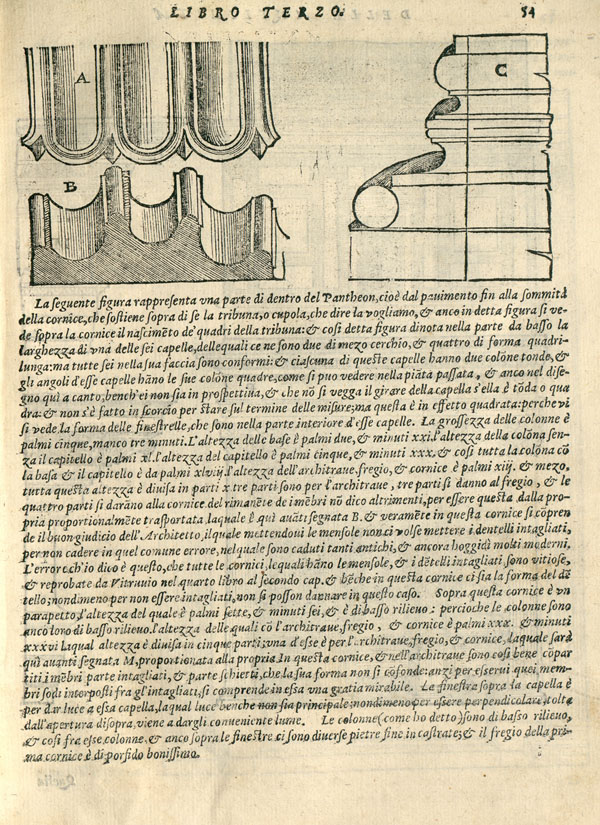 LIBRO TERZO.
54
A
B
C
La seguente figura rappresenta vna parte di dentro del Pantheon, cioè dal pauimento fin alla sommità
della cornice, che sostiene sopra di se la tribuna, o cupola, che dire la vogliamo, & anco in detta figura si ve-
de sopra la cornice il nascimẽto de' quadri della tribuna: & così detta figura dinota nella parte da basso la
larghezza di vna delle sei capelle, delle quali ce ne sono due di mezo cerchio, et quattro di forma quadri-
lunga: ma tutte sei nella sua faccia sono conformi: & ciascuna di queste capelle hanno due colõne tonde, &
gli angoli d'esse capelle hãno le sue colõne quadre, come si puo vedere nella piãta passata, & anco nel dise-
gno quì a canto, bench'ei non sia in prospettiua, & che nõ si vegga il girare della capella s'ella è tõda o qua
dra: & non s'è fatto in scorcio per stare sul termine delle misure; ma questa è in effetto quadrata: perche vi
si vede, la forma delle finestrelle, che sono nella parte interiore d'esse capelle. La grossezza delle colonne è
palmi cinque, manco tre minuti. L'altezza delle base è palmi due, & minuti xxi. l'altezza della colõna sen-
za il capitello è palmi xl. l'altezza del capitello è palmi cinque, & minuti xxx. & così tutta la colona cõ
la basa & il capitello è da palmi xlviij. l'altezza dell'architraue, fregio, & cornice è palmi xiij. & mezo,
tutta questa altezza è diuisa in parti x tre parti sono per l'architraue, tre parti si danno al fregio, & le
quattro parti si darãno alla cornice. del rimanẽte de i mẽbri nõ dico altrimenti, per essere questa dalla pro-
pria proportionalmẽte trasportata, laquale è quì auãti segnata B. & veramẽte in questa cornice si copren-
de il buon giudicio dell'Architetto, il quale mettendoui le mensole non ci volse mettere i dentelli intagliati,
per non cadere in quel comune errore, nel quale sono caduti tanti antichi, & ancora hoggidì molti moderni.
L'errore ch'io dico è questo, che tutte le cornici, lequali hãno le mensole, & i dẽtelli intagliati sono vitiose,
& reprobate da Vitruuio nel quarto libro al secondo cap. & bẽche in questa cornice ci sia la forma del dẽ
tello; nondimeno per non essere intagliati, non si posson dannare in questo caso. Sopra questa cornice è vn
parapetto, l'altezza del quale è palmi sette, & minuti sei, & è di basso rilieuo: percioche le colonne sono
anco loro di basso rilieuo. l'altezza delle quali cõ l'architraue, fregio, & cornice è palmi xxx. & minuti
xxxvi laqual altezza è diuisa in cinque parti; vna d'esse è per l'architraue, fregio, & cornice, laquale sarà
quì auanti segnata M, proportionata alla propria. In questa cornice, & nell'architraue sono così bene cõpar
titi i mẽbri parte intagliati, & parte schietti, che la sua forma non si cõfonde: anzi per esserui quei mem-
bri sodi interposti fra gl'intagliati, si comprende in essa vna gratia mirabile. La finestra sopra la capella è
per dar luce a essa capella, laqual luce benche non sia principale; nondimeno per essere perpendicolare, tolta
dall'apertura di sopra, viene a dargli conueniente lume. Le colonne (come ho detto) sono di basso rilieuo,
& così fra esse colonne, & anco sopra le finestre ci sono diuerse pietre fine in castrate; & il fregio della pri-
ma cornice è di porfido bonissimo.